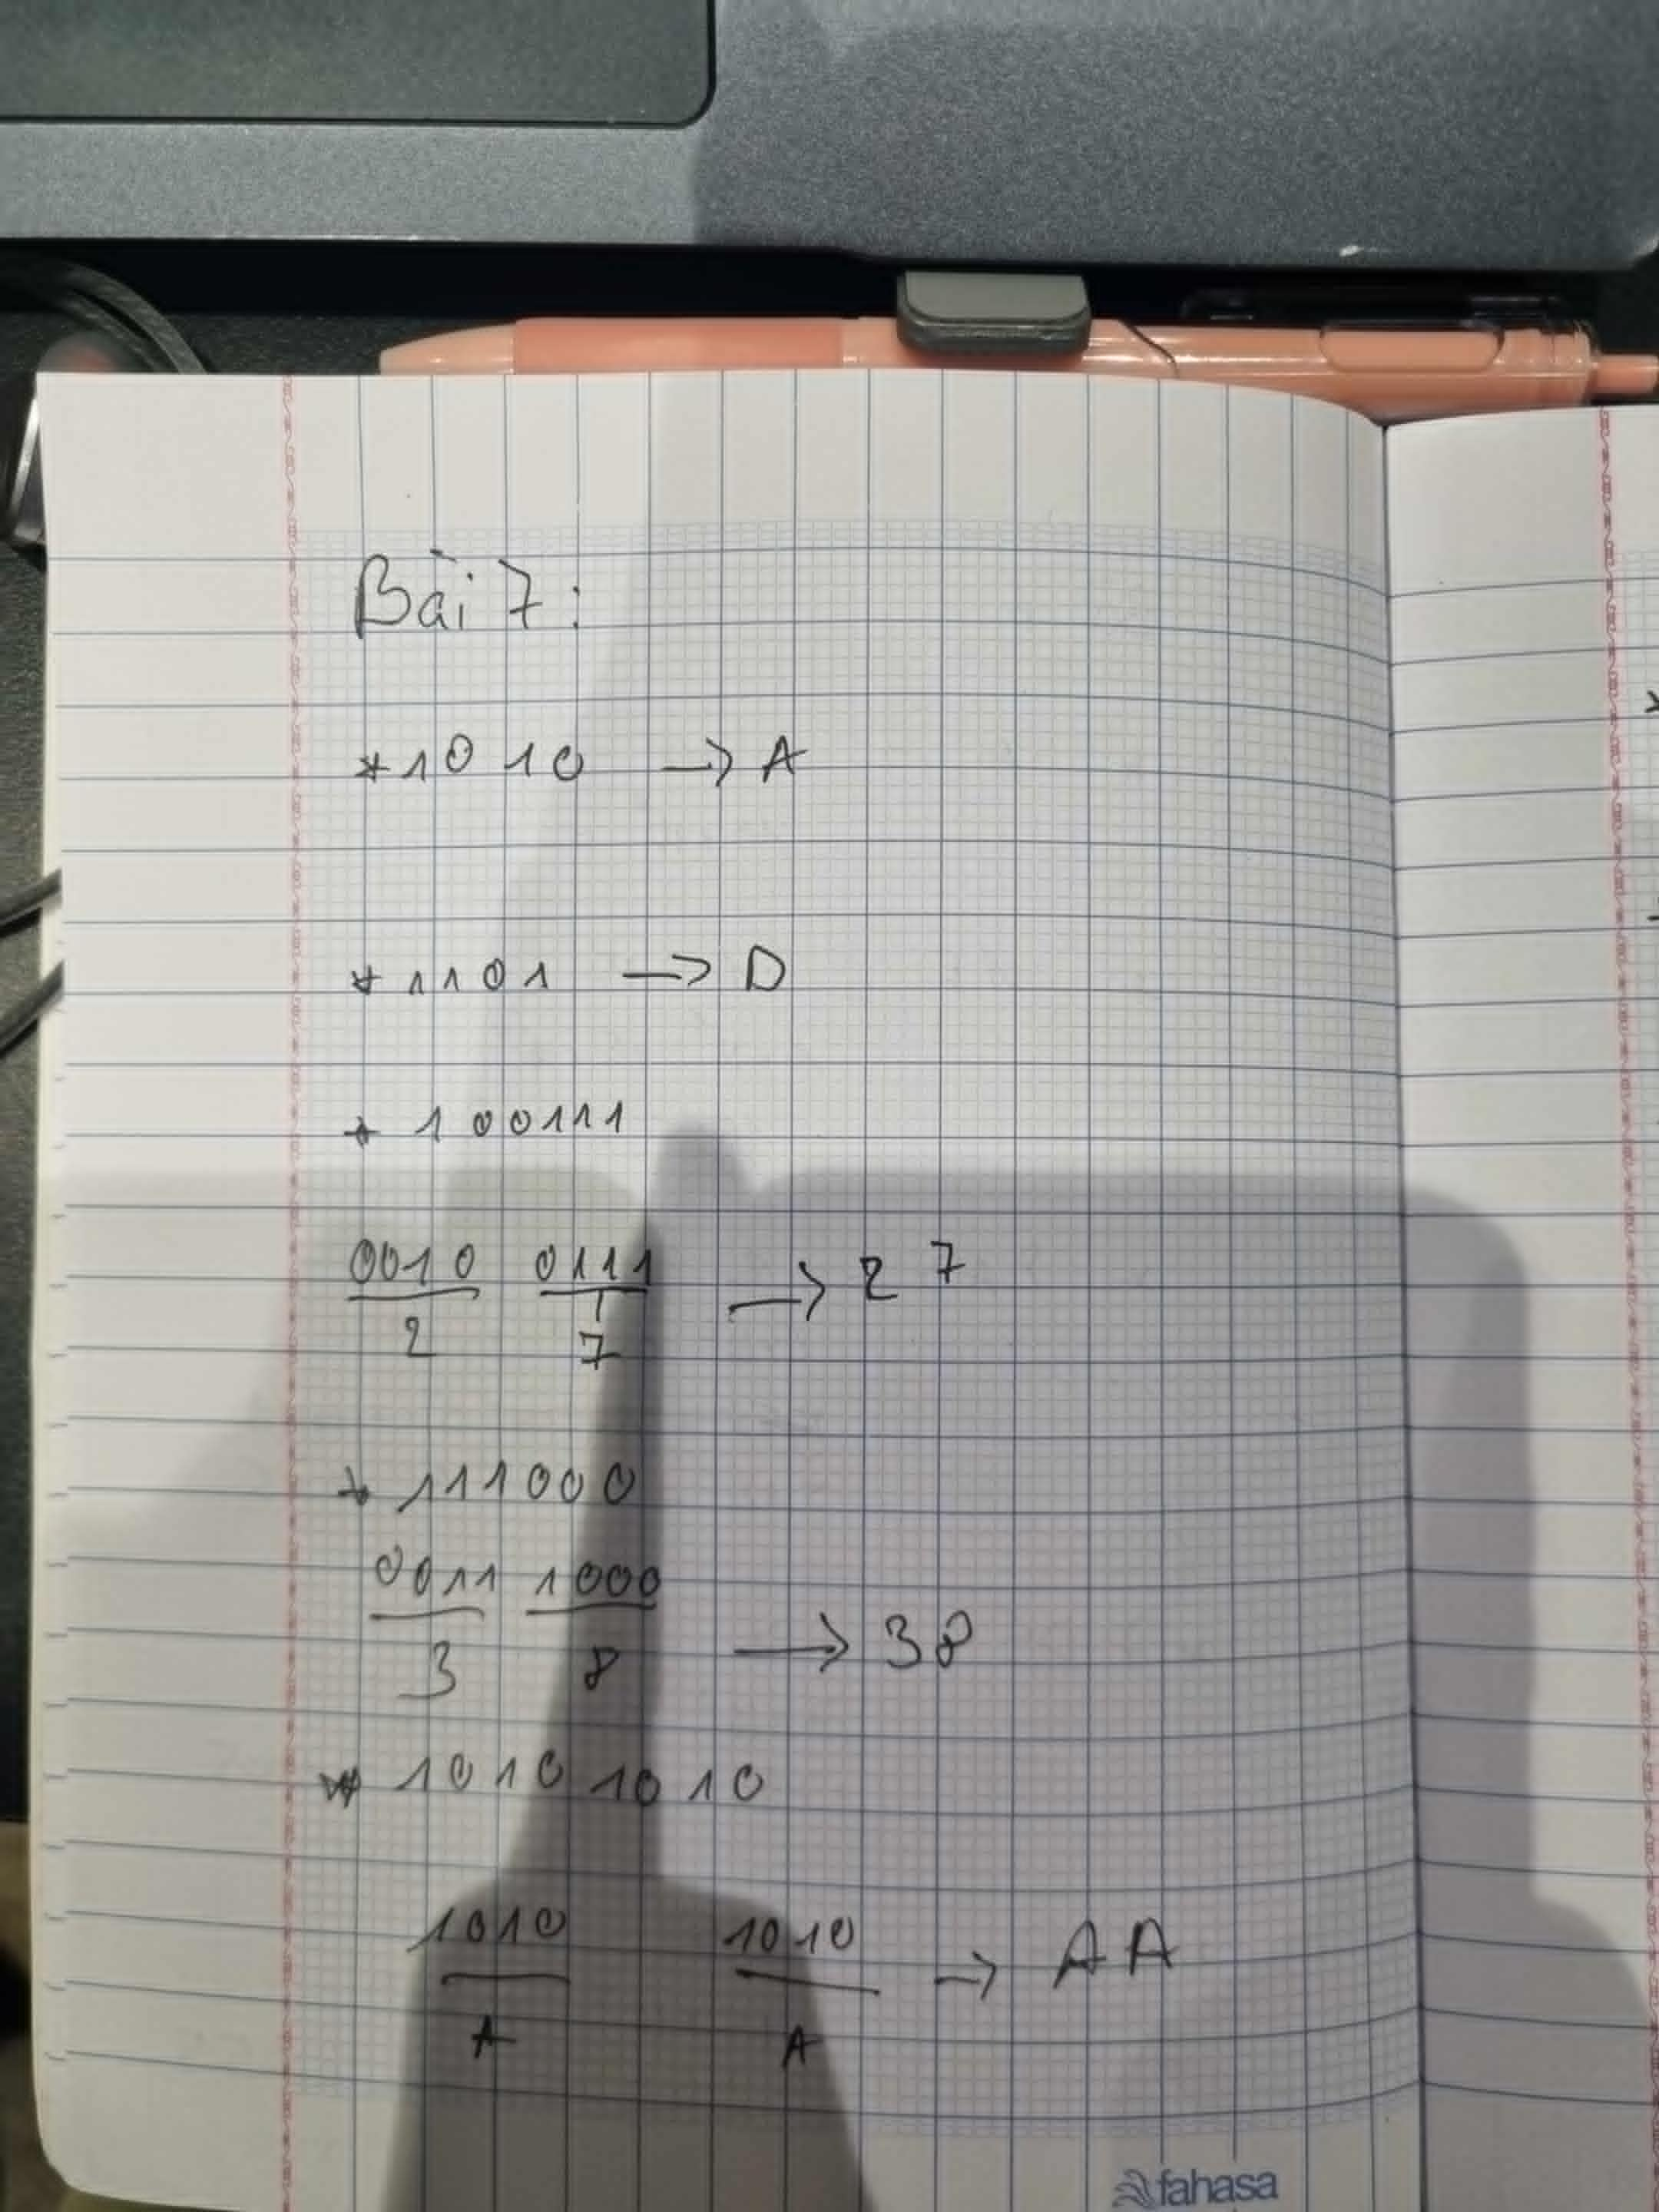 Bài 7:
* 1010 → A
* 1101 → D
* 100111
0010 0111 → 27
2 7
* 111000
0011 1000
3 8 → 38
* 10101010
1010 1010 → AA
A A
fahasa